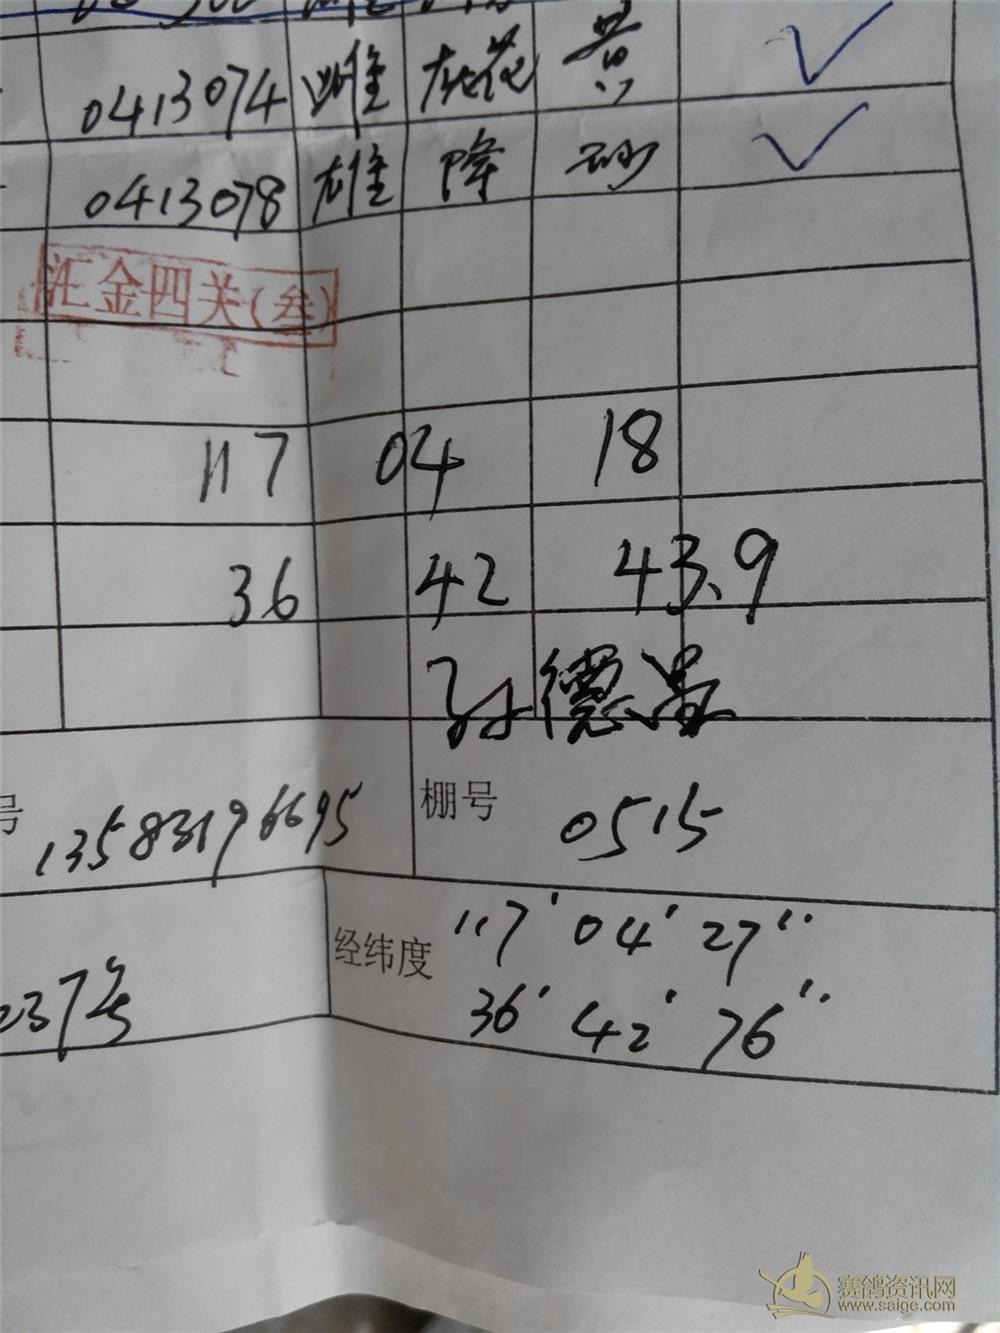 0413074 雌 灰花 黄 ✓
0413078 雄 降 砂 ✓
汇金四关(叁)
117 04 18
36 42 43.9
孙德贵
号 13583196695 棚号 0515
237号 经纬度 117' 04' 27''
36' 42' 76''
赛鸽资讯网
www.saige.com